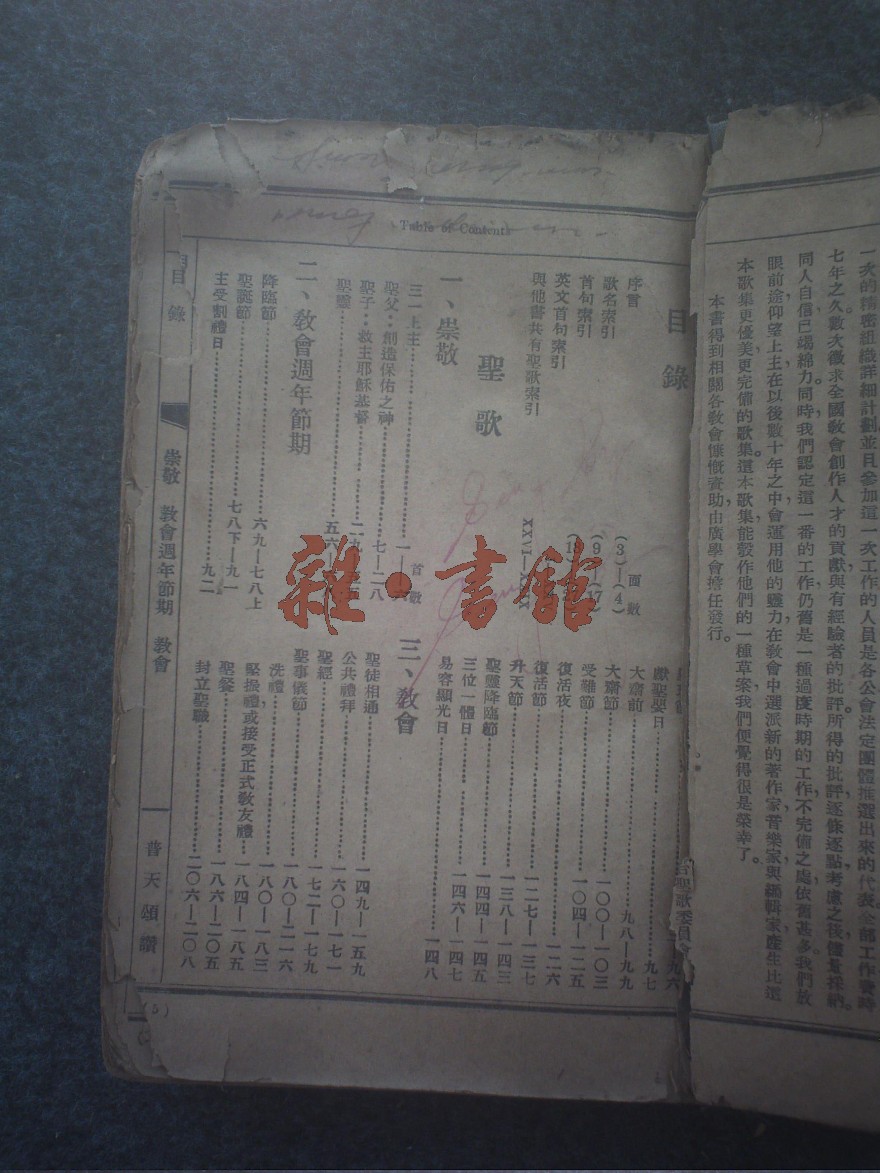 一次的精密組織詳細計劃並且參加這一次工作的人員是各公會法定團體推選出來的代表。全部工作費時
七年之久數次徵求全國教會創作人才的貢獻與有經驗者的批評所得的批評逐條逐點考慮之後儘量採納。
同人自信已竭綿力。同時我們認定這一番的工作仍舊是一種過度時期的工作不完備之處依舊甚多我們放
眼前途仰望上主在以後數十年之中會運用他的靈力在教會中選派新的著作家音樂家與編輯家產生比這
本歌集更優美更完備的歌集這本歌集能彀作他們的一種草案我們便覺得很是榮幸了。
本書得到相關各教會慷慨資助由廣學會擔任發行。
Table of Contents
目錄
面數
序言 (3)—(4)
歌名索引
首句索引
英文首句索引
與他書共有聖歌索引
聖歌
首數
一、崇敬
三一上主
聖父：創造保佑之神 七—二八
聖子：救主耶穌基督
聖靈
二、教會週年節期
降臨節 六九—七八上
聖誕節 七八下—九一
主受割禮日 九二
獻聖嬰日 九七
大齋前 九八—九九
大齋節 一〇〇—一〇三
受難節 一〇四—一二五
復活夜 一二六
復活節 一二七—一三七
升天節 一三八—一四三
聖靈降臨節 一四四—一四五
三位一體日 一四六—一四七
易容顯光日 一四八
三、教會
聖徒相通 一四九—一五九
公共禮拜 一六〇—一七一
聖經 一七二—一七九
聖事儀節 一八〇—二一六
洗禮 一八〇—一八三
堅振禮或接受正式教友禮 一八四—一八五
聖餐 一八六—二〇五
封立聖職 二〇六—二〇八
目錄
崇敬 教會週年節期 教會
普天頌讚
(5)
雜·書館